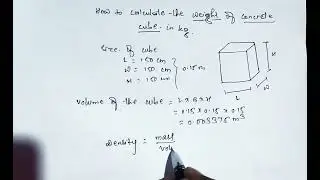 How to calculate the weight of concrete
cube in kg.
Size of cube
L = 150 cm
W = 150 cm
H = 150 cm
0.15m
H
W
L
Volume of the cube = L x B x H
= 0.15 x 0.15 x 0.15
= 0.003375 m³
Density = mass
Vol